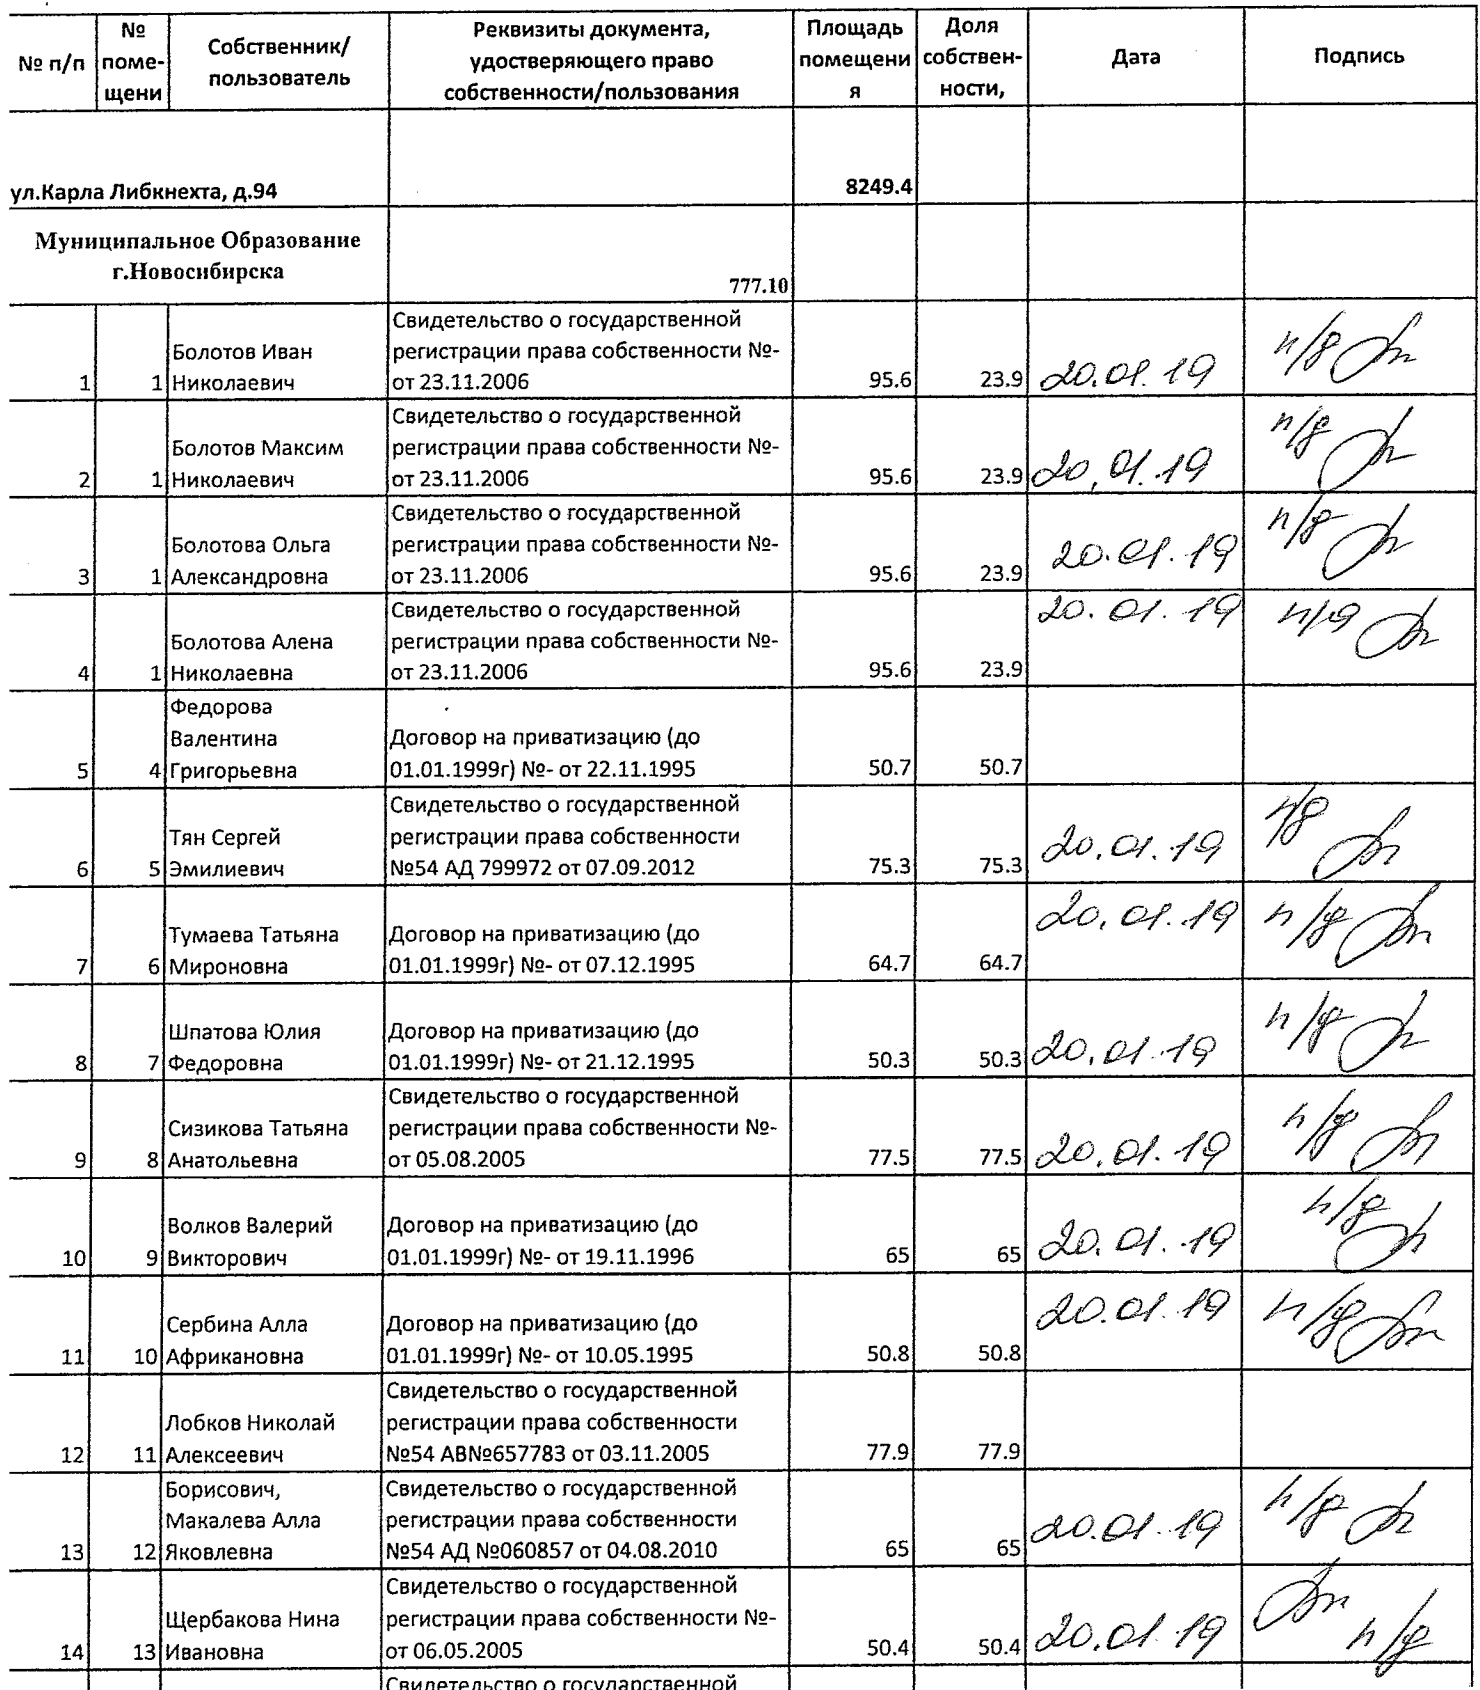 № п/п
№ поме-
щени
Собственник/
пользователь
Реквизиты документа,
удостверяющего право
собственности/пользования
Площадь
помещени
я
Доля
собствен-
ности,
Дата
Подпись
ул.Карла Либкнехта, д.94
8249.4
Муниципальное Образование
г.Новосибирска
777.10
1
1
Болотов Иван
Николаевич
Свидетельство о государственной
регистрации права собственности №-
от 23.11.2006
95.6
23.9
20.01.19
п/д
2
1
Болотов Максим
Николаевич
Свидетельство о государственной
регистрации права собственности №-
от 23.11.2006
95.6
23.9
20.01.19
п/д
3
1
Болотова Ольга
Александровна
Свидетельство о государственной
регистрации права собственности №-
от 23.11.2006
95.6
23.9
20.01.19
п/д
4
1
Болотова Алена
Николаевна
Свидетельство о государственной
регистрации права собственности №-
от 23.11.2006
95.6
23.9
20.01.19
п/д
5
4
Федорова
Валентина
Григорьевна
Договор на приватизацию (до
01.01.1999г) №- от 22.11.1995
50.7
50.7
6
5
Тян Сергей
Эмилиевич
Свидетельство о государственной
регистрации права собственности
№54 АД 799972 от 07.09.2012
75.3
75.3
20.01.19
п/д
7
6
Тумаева Татьяна
Мироновна
Договор на приватизацию (до
01.01.1999г) №- от 07.12.1995
64.7
64.7
20.01.19
п/д
8
7
Шпатова Юлия
Федоровна
Договор на приватизацию (до
01.01.1999г) №- от 21.12.1995
50.3
50.3
20.01.19
п/д
9
8
Сизикова Татьяна
Анатольевна
Свидетельство о государственной
регистрации права собственности №-
от 05.08.2005
77.5
77.5
20.01.19
п/д
10
9
Волков Валерий
Викторович
Договор на приватизацию (до
01.01.1999г) №- от 19.11.1996
65
65
20.01.19
п/д
11
10
Сербина Алла
Африкановна
Договор на приватизацию (до
01.01.1999г) №- от 10.05.1995
50.8
50.8
20.01.19
п/д
12
11
Лобков Николай
Алексеевич
Свидетельство о государственной
регистрации права собственности
№54 АВ№657783 от 03.11.2005
77.9
77.9
13
12
Борисович,
Макалева Алла
Яковлевна
Свидетельство о государственной
регистрации права собственности
№54 АД №060857 от 04.08.2010
65
65
20.01.19
п/д
14
13
Щербакова Нина
Ивановна
Свидетельство о государственной
регистрации права собственности №-
от 06.05.2005
50.4
50.4
20.01.19
п/д
Свидетельство о государственной